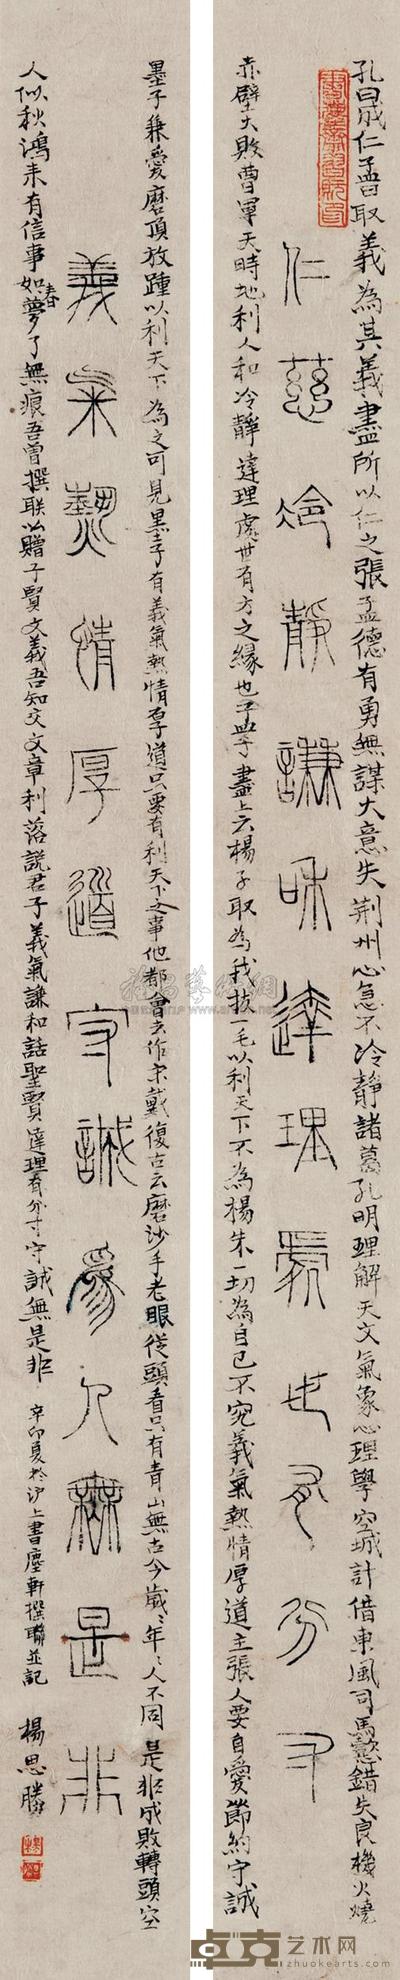 孔曰成仁孟曰取義為其義盡所以仁之張孟德有勇無謀大意失荆州心急不冷靜諸葛孔明理解天文氣象心理學空城計借東風司馬懿錯失良機火燒
仁慈冷靜謙和達理處世有分寸
赤壁大敗曹軍天時地利人和冷靜達理處世有方之緣也孟學盡上云楊子取為我拔一毛以利天下不為楊朱一切為自己不究義氣熱情厚道主張人要自愛節約守誠
墨子兼愛磨頂放踵以利天下為之可見墨子有義氣熱情厚道只要有利天下之事他都會去作宋戴復古云磨沙手老眼從頭看只有青山無古今歲々年々人不同是非成敗轉頭空
義氣熱情厚道守誠為人無是非
人似秋鴻來有信事如春夢了無痕吾曾撰联以贈子賢文義吾知交文章利落說君子義氣謙和話聖賢達理有分寸守誠無是非
辛卯夏於沪上書塵軒撰聯並記
楊思勝
卓克艺术网
zhuokearts.com